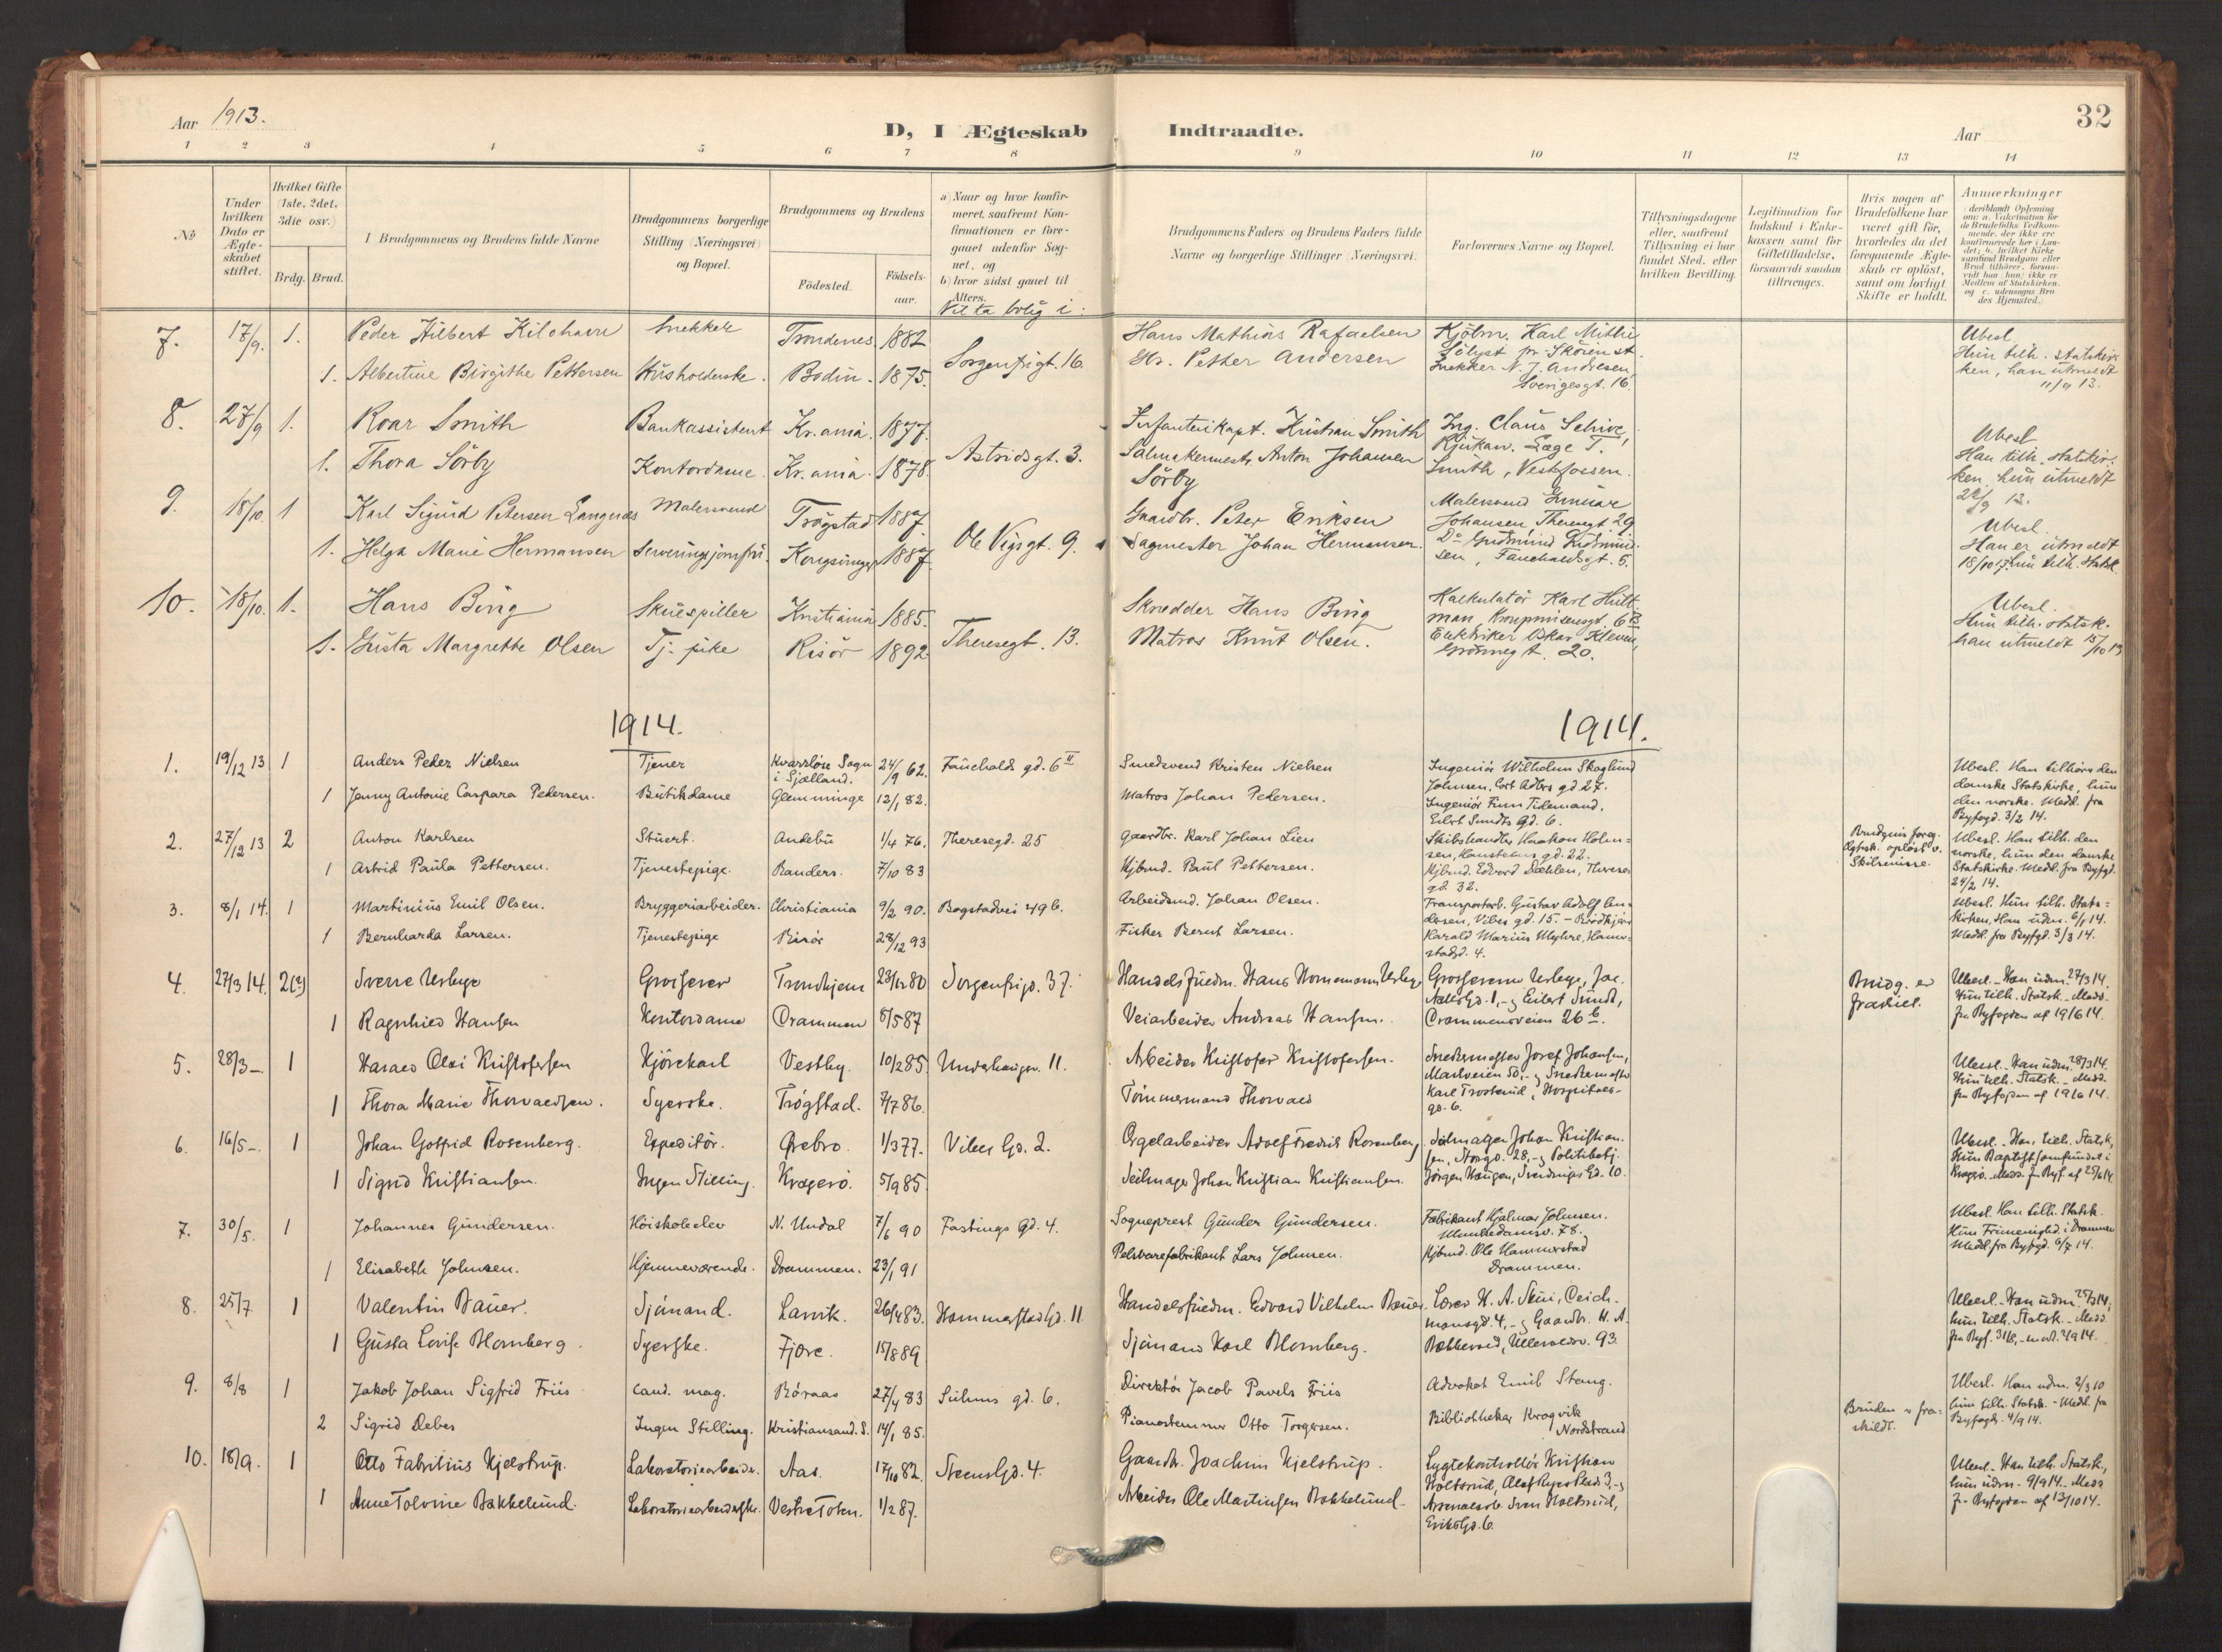 Aar 1913.
D, I Ægteskab Indtraadte.
32
Aar
1 2 3 4 5 6 7 8 9 10 11 12 13 14
№
Under hvilken Dato er Ægteskabet stiftet.
Hvilket Gifte (1ste, 2det, 3die osv.)
Brdg. Brud.
I Brudgommens og Brudens fulde Navne
Brudgommens borgerlige Stilling (Næringsvei) og Bopæl.
Brudgommens og Brudens
Födested. Födselsaar.
a) Naar og hvor konfirmeret, saafremt Konfirmationen er foregaaet udenfor Sognet, og
b) hvor sidst gaaet til Alters.
Vil ta bolig i:
Brudgommens Faders og Brudens Faders fulde Navne og borgerlige Stillinger (Næringsvei).
Forlovernes Navne og Bopæl.
Tillysningsdagene eller, saafremt Tillysning ei har fundet Sted, efter hvilken Bevilling.
Legitimation for Indskud i Enkekassen samt for Giftetilladelse, forsaavidt saadan tiltrænges.
Hvis nogen af Brudefolkene har været gift för, hvorledes da det foregaaende Ægteskab er oplöst, samt om lovligt Skifte er holdt.
Anmerkninger
7. 17/9. 1. Peder Hilbert Snekker Trondenes 1882 Sorgenfrigt. 16. Hans Mathias Rafaelsen Kjölm. Karl Mithe Ubesl.
Sölyst pr. Skøien st. Hun tilh. statskir
1. Albertine Birgithe Pettersen Husholderske. Bodin. 1875. Petter Andersen Snekker N. J. Andresen ken, han utmeldt
Sverigesgt. 16. 11/9 13.
8. 27/9 1. Roar Smith Bankassistent Kr.ania. 1877. Astridsgt. 3. Infanterikapt. Kristian Smith Ing. Claus Schive, Ubesl
Rjukan. Læge T. Han tilh. statskir-
1. Thora Sörby Kontordame. Kr.ania. 1878. Salmakermestr. Anton Johansen Smith, Vestfossen. ken, hun utmeldt
Sörby 22/9 13.
9. 18/10. 1 Karl Sigurd Petersen Langnes Malersvend Trögstad 1887. Ole Vigsgt. 9. Gaardbr. Peter Eriksen Malersvend Gunnar Ubesl.
Johansen, Theresgt. 29 Han er utmeldt
1. Helga Marie Hermansen Serveringsjomfru. Kongsvinger 1887. Sagmester Johan Hermansen. Do Gudmund Gudmundsen, Fauchaldsgt. 5. 18/10 13. hun tilh. Statsk.
10. 18/10. 1. Hans Bing Skuespiller Kristiania 1885. Theresegt. 13. Skredder Hans Bing Kalkulatör Karl Hutt- Ubesl.
man, Kronprinsensgt. 6 Hun tilh. statsk.
1. Gusta Margrethe Olsen Tj. pike Risör 1892 Matros Knut Olsen. Elektriker Oskar Kleven, han utmeldt 15/10 13
Grönnegt. 20.
1914. 1914.
1. 19/12 13 1 Anders Peder Nielsen Tjener Kvarslöse Sogn i Sjælland. 24/9 62. Fauchalds gd. 6 II Smedsvend Kristen Nielsen Ingeniör Wilhelm Skoglund Ubesl. Han tilhörer den
Johnsen, Cort Adlers gd 27. danske Statskirke, hun
1 Jenny Antonie Caspara Pedersen. Butikdame Glemminge 12/1 82. Matros Johan Pedersen. Ingeniör Finn Tidemand, den norske. Medd. fra
Eilert Sundts gd. 6. Byfogd. 3/2 14.
2. 27/12 13 2 Anton Karlsen Stuert. Andebu 1/4 76. Theresegd. 25 Gaardbr. Karl Johan Lien Skibshandler Haakon Holm- Brudgms foreg. Ægtesk. oplöst v. Skilsmisse. Ubesl. Han tilh. den
sen, gd. 22. norske, hun den danske
1 Astrid Paula Pettersen. Tjenestepige. Randers. 7/10 83 Kjbmd. Paul Pettersen. Kjbmd. Edvard Dæhlen, Therese Statskirke. Medd. fra Byfgd.
gd. 32. 24/2 14.
3. 8/1 14. 1 Martinius Emil Olsen. Bryggeriarbeider. Christiania 9/2 90. Bogstadvei 49 b. Arbeidsmd. Johan Olsen. Transportarb. Gustav Adolf An- Ubesl. Hun tilh. Stats-
dersen, Vibes gd. 15 – kirken, Han udm. 6/1 14.
1 Bernharda Larsen. Tjenestepige Risör 28/12 93 Fisker Bernt Larsen. Harald Marius Myhre, Medd. fra Byfgd. 3/3 14.
stadgd. 4.
4. 27/3 14. 2(?) Sverre Grosserer Trondhjem 23/12 80 Sorgenfrigd. 37. Handelsfuldm. Hans Hornemann Grosserer Brudg. er fraskilt. Ubesl. – Han udm. 27/3 14.
Aallsgd. 1, – og Eilert Sundt, Hun tilh. Statsk. – Medd.
1 Ragnhild Hansen Kontordame Drammen 8/5 87 Veiarbeider Andreas Hansen. Drammensveien 26 b. fra Byfogden af 19/6 14.
5. 28/3 – 1 Harald Olai Kristofersen Kjörekarl Vestby. 10/2 85. Underhaugsv. 11. Arbeider Kristofer Kristofersen. Snedkermester Josef Johansen, Ubesl. – Han udm. 28/3 14.
Markveien 50, – og Snedkermester Hun tilh. Statsk. – Medd.
1 Thora Marie Thorvaldsen. Syerske. Trögstad. 7/7 86. Tömmermand Thorvald Karl Trosterud, Hospitals- fra Byfogden af 19/6 14.
gd. 6.
6. 16/5 –. 1 Johan Gotfrid Rosenberg. Expeditör. Ørebro. 1/3 77. Vibes Gd. 2. Orgelarbeider Adolf Fredrik Rosenberg. Seilmager Johan Kristian- Ubesl. – Han tilh. Statsk.,
sen, Storgd. 28, – og Politibetj. Hun Baptistsamfundet i
1 Sigrid Kristiansen. Ingen Stilling. Kragerö. 5/9 85. Seilmager Johan Kristian Kristiansen. Jörgen Haugen, Sverdrups Gd. 10. Kragerö. Medd. fra Byf. af 25/6 14.
7. 30/5. 1 Johannes Gundersen. Höiskoleelev N. Undal 7/6 90 Fastings gd. 4. Sogneprest Gunder Gundersen. Fabrikant Hjalmar Johnsen. Ubesl. Han tilh. Statsk.
Munkedamsv. 78. Hun Frimenighd. i Drammen
1 Elisabeth Johnsen. Hjemmeværende. Drammen. 23/1 91 Pelsvarefabrikant Lars Johnsen. Kjbmd. Ole Hammerstad Medd. fra Byfgd. 6/7 14.
Drammen.
8. 25/7 1 Valentin Bauer. Sjömand. Larvik. 26/4 83. Hammerstadgd. 11 Handelsfuldm. Edvard Vilhelm Bauer. Lærer H. A. Deich- Ubesl. – Han udm. 25/7 14,
mansgd. 4, – og Gaardbr. H. A. hun tilh. Statsk. – Medd.
1 Gusta Lovise Blomberg. Syerske. Fjære. 15/8 89 Sjömand Karl Blomberg. Bakkerud, Ullevoldsv. 93. fra Byf. 31/8,
9. 8/8 1 Jakob Johan Sigfrid Friis cand. mag. Röraas 27/4 83 Suhms gd. 6. Direktör Jacob Pavels Friis Advokat Emil Stang. Bruden er fraskildt. Ubesl. Han udm. 2/3 10
hun tilh. Statsk. – Medd. fra
2 Sigrid Debes Ingen Stilling. Kristiansand. S. 14/1 85. Pianostemmer Otto Torgersen. Bibliothekar Krogvik Byfogd. 4/9 14.
Nordstrand
10. 18/9. 1 Otto Fabritius Kjelstrup. Laboratoriearbeider. Aas. 17/10 82. Steensgd. 4. Gaardbr. Joachim Kjelstrup. Lygtekontrollör Kristian Ubesl. – Han tilh. Statsk.,
Holtsrud, Olaf Ryes Plads 3, – og hun udm. 9/9 14. – Medd.
1 Anne Tolvine Bakkelund. Laboratoriearbeiderske. Vestre Toten. 1/2 87. Arbeider Ole Martinsen Bakkelund – Arsenalarb. Sven Holtsrud, fra Byfogden af 13/10 14.
Eriksgd. 6.